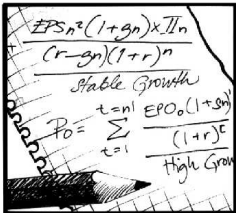 EPSn²(1+gn)×Πn
(r-gn)(1+r)ⁿ
Stable Growth
t=n1 EPO₀(1+gn)ᵗ
P₀= Σ
t=1 (1+r)ᵗ
High Grow